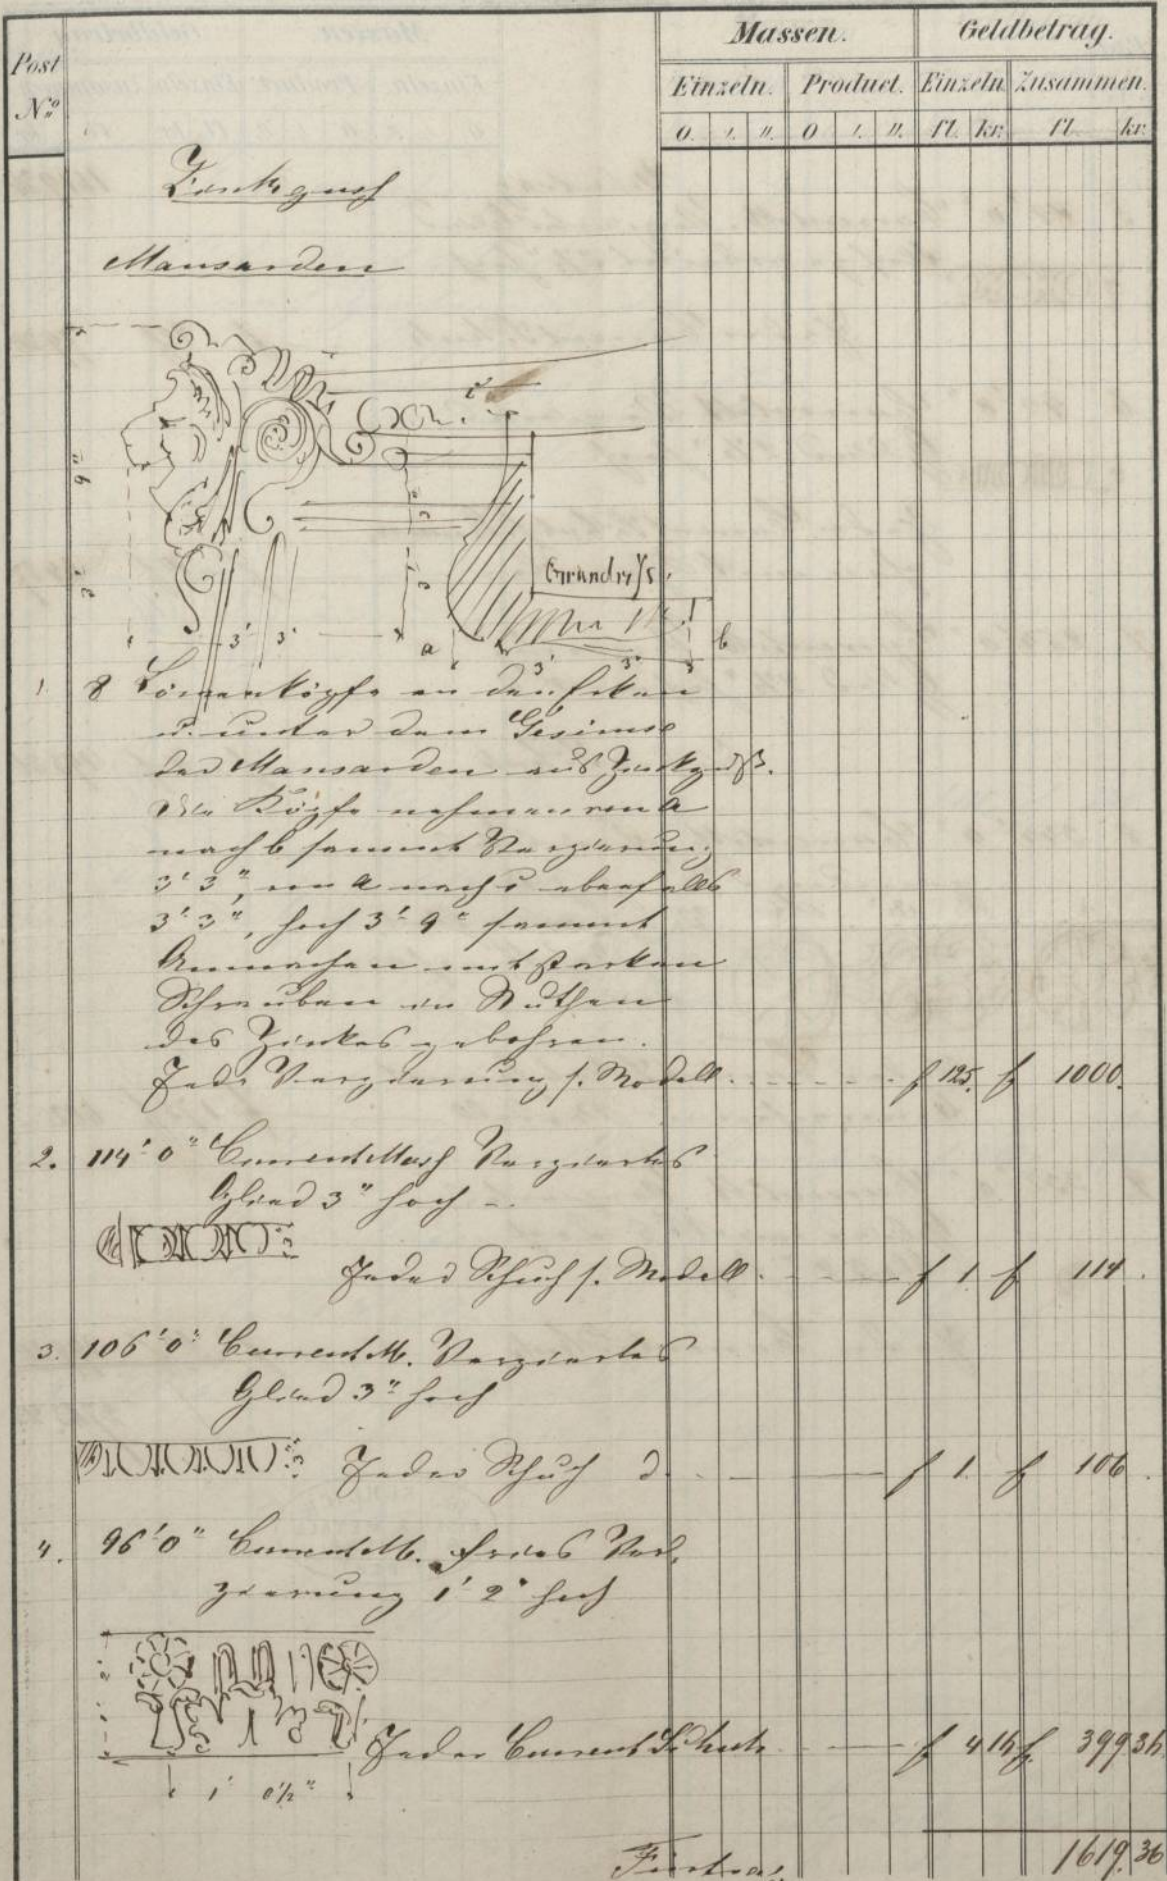 Post
No.
Massen.
Geldbetrag.
Einzeln.
Product.
Einzeln
Zusammen.
0. ı. ıı. 0 ı. ıı. fl. kr. fl. kr.
Zinkguss
Mansarden
Grundriss
a
b
3' 3"
3' 3"
1. 8 Löwenköpfe an den Ecken
u. unter dem Gesimse
der Mansarden aus Zinkguß.
Die Köpfe nehmen von a
nach b sammt Verzierung
3' 3", von a nach c ebenfalls
3' 3", hoch 3' 9" sammt
Anmachen mit starken
Schrauben in Nuthen
des Zinkes gebohren.
Jede Verzierung s. Modell. f 125. f 1000.
2. 114' 0" CurrentMass Verziertes
Glied 3" hoch
Jeder Schuh s. Modell. f 1. f 114.
3. 106' 0" Current M. Verziertes
Glied 3" hoch
Jeder Schuh d f 1. f 106.
4. 96' 0" Current M. Fries Ver-
zierung 1' 2" hoch
1' 2"
Jeder Current Schuh f 4 f 399 36
1' 0½"
Fürtrag 1619. 36